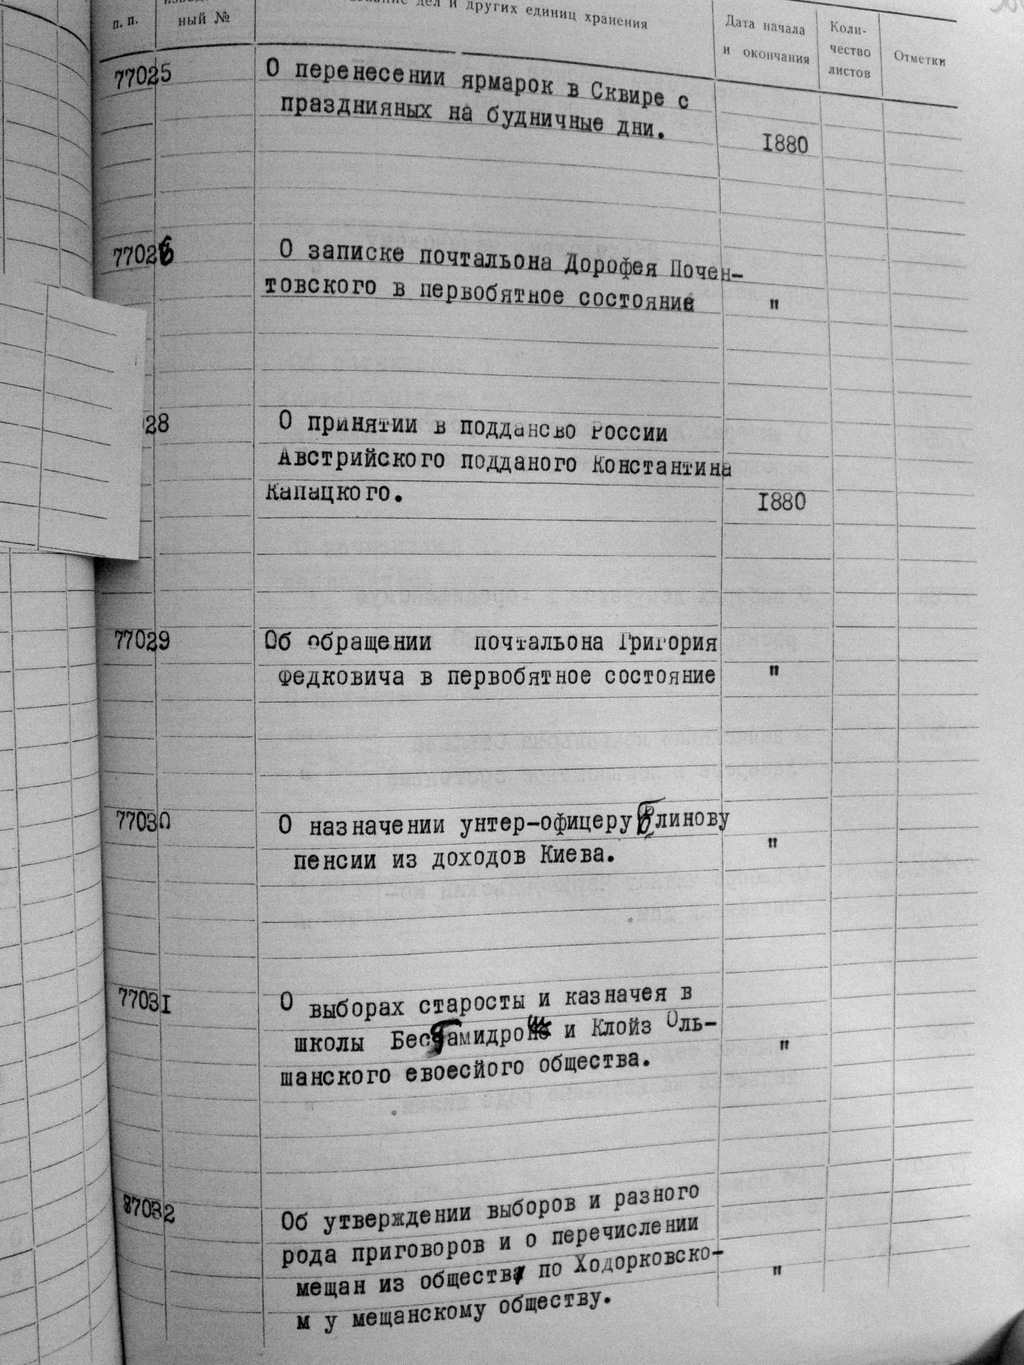 п. п.
ный №
дел и других единиц хранения
Дата начала
и окончания
Коли-
чество
листов
Отметки
77025
О перенесении ярмарок в Сквире с
празднияных на будничные дни.
1880
77026
О записке почтальона Дорофея Почен-
товского в первобятное состояние
"
28
О принятии в поддансво России
Австрийского подданого Константина
Капацкого.
1880
77029
Об обращении почтальона Григория
Федковича в первобятное состояние
"
77030
О назначении унтер-офицеру Блинову
пенсии из доходов Киева.
"
77031
О выборах старосты и казначея в
школы и Клойз Оль-
шанского евоесйого общества.
"
77032
Об утверждении выборов и разного
рода приговоров и о перечислении
мещан из общества по Ходорковско-
м у мещанскому обществу.
"